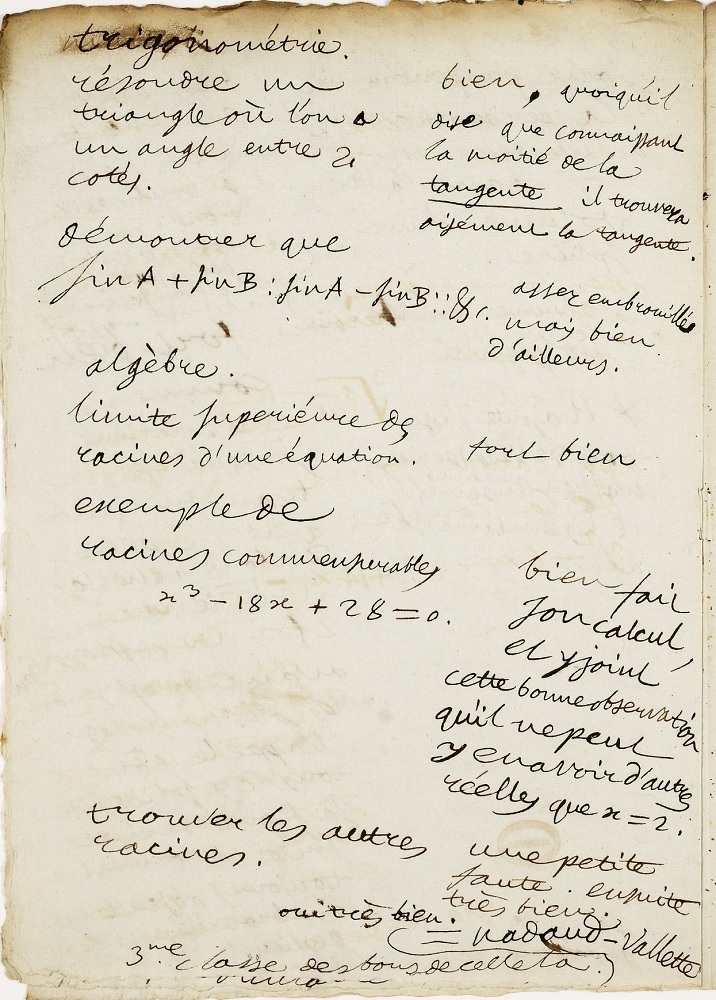 trigonométrie.
résoudre un
triangle où l'on a
un angle entre 2
cotés.
bien, quoiqu'il
dise que connaissant
la moitié de la
tangente il trouvera
aisément la tangente.
démontrer que
sin A + sin B : sin A - sin B :: &c.
assez embrouillé
mais bien
d'ailleurs.
algèbre.
limite superiéure des
racines d'une équation.
fort bien
exemple de
racines commensurables
x³ - 18x + 28 = 0.
bien fait
son calcul,
et y joint
cette bonne observation
qu'il ne peut
y en avoir d'autres
réelles que x = 2.
trouver les autres
racines.
une petite
faute. ensuite
très bien.
oui très bien.
= nadaud-Vallette
3me classe des bons de celle la.